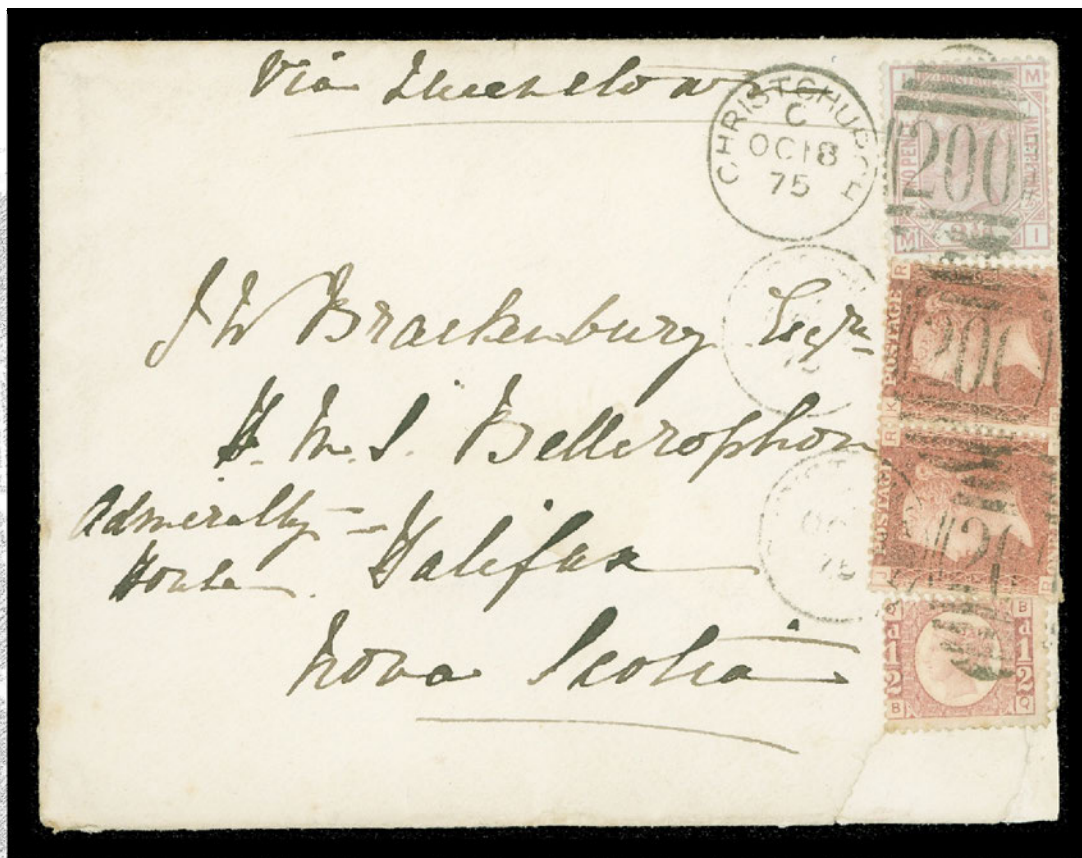 Via Queenstown
CHRISTCHURCH
C
OC 18
75
200
M
M I
J W Brackenbury Esqre
H. M. S. Bellerophon
Admiralty House - Halifax
Nova Scotia
R
POSTAGE
K
200
75
R
POSTAGE
75
B
d
1/2
B Q